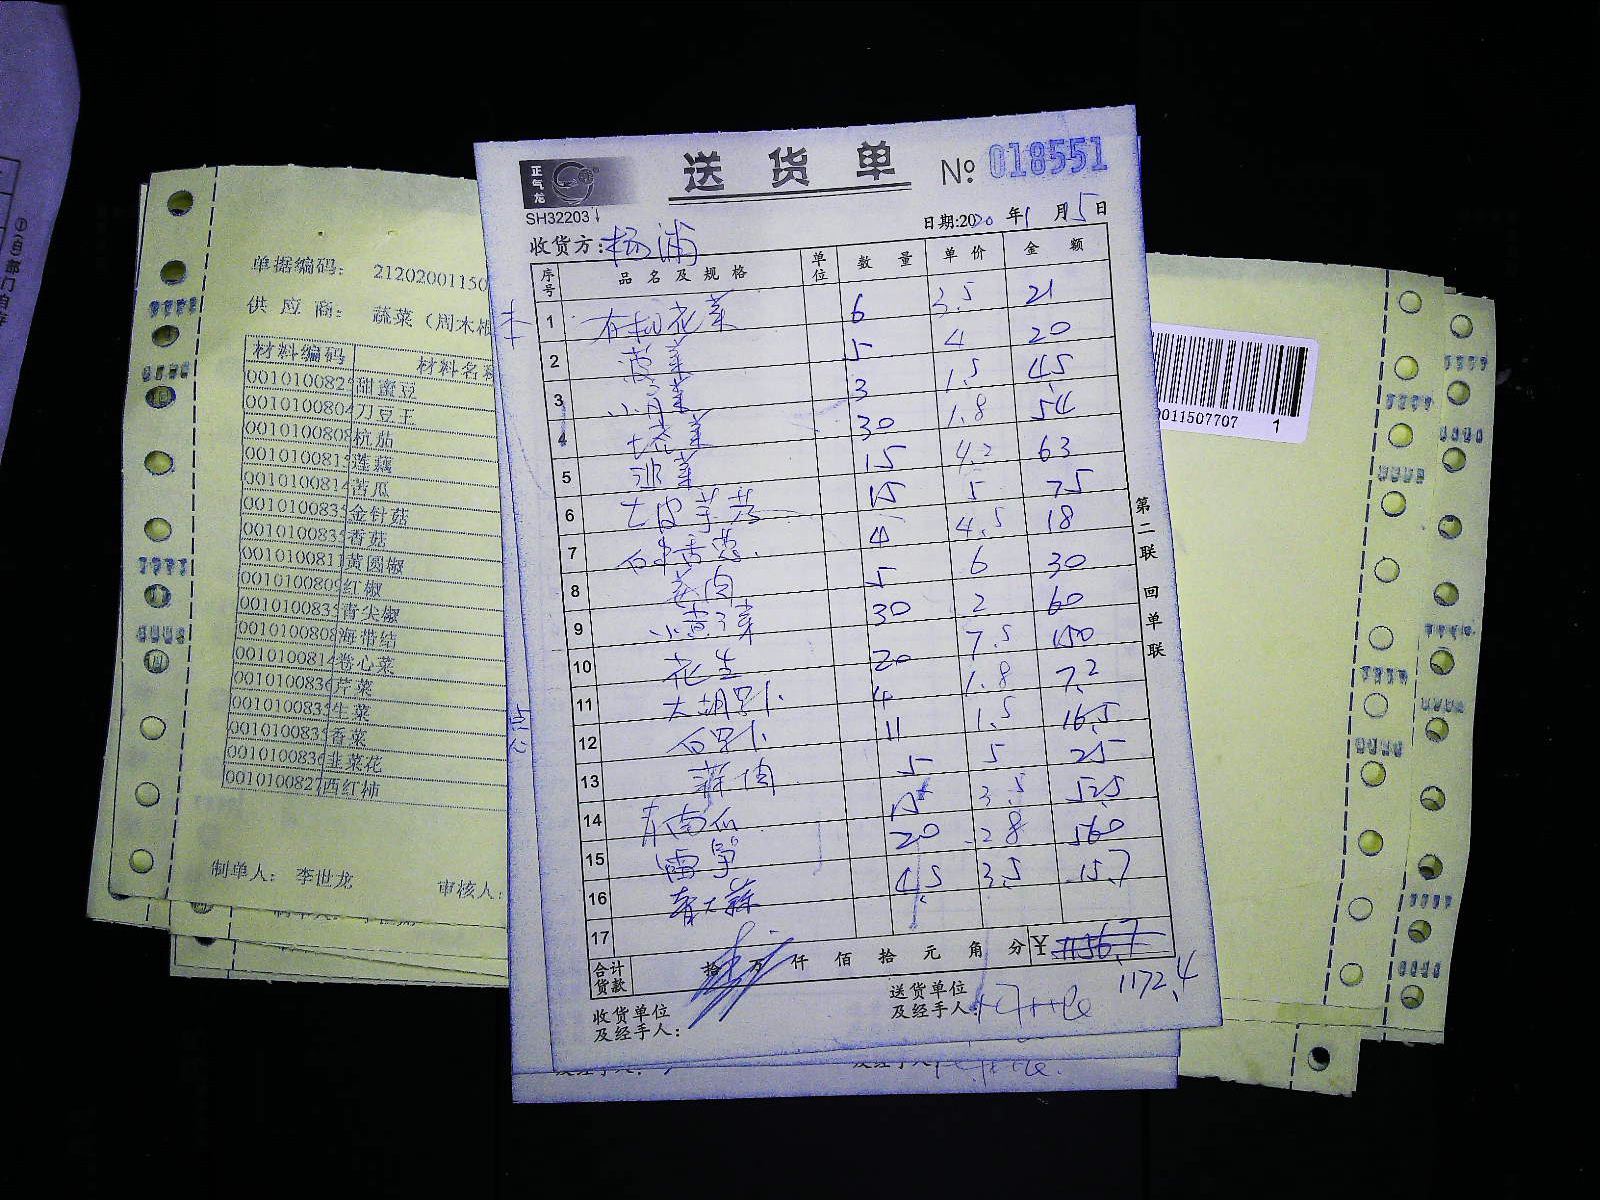 送货单 № 018551
正气龙
SH32203
日期:2020年1月5日
收货方:杨浦
序号 品名及规格 单位 数量 单价 金额
1 有机花菜 6 3.5 21
2 菠菜 5 4 20
3 小丹菜 3 1.5 4.5
4 塔菜 30 1.8 54
5 15 4.2 63
6 大皮芋艿 15 5 75
7 4 4.5 18
8 5 6 30
9 30 2 60
10 花生 20 7.5 150
11 大胡罗卜 4 1.8 7.2
12 白罗卜 11 1.5 16.5
13 蒜肉 5 5 25
14 南瓜 15 3.5 52.5
15 雷笋 20 28 560
16 青大蒜 4.5 3.5 15.7
17
合计货款 拾 万 仟 佰 拾 元 角 分 ¥ 1156.7
1172.4
收货单位及经手人:
送货单位及经手人:
第二联 回单联
点心
单据编码: 21202001150
供应商: 蔬菜(周木根
材料编码 材料名称
001010082 甜蜜豆
001010080 刀豆王
001010080 杭茄
001010081 莲藕
001010081 苦瓜
001010083 金针菇
001010083 香菇
001010081 黄圆椒
001010080 红椒
001010083 青尖椒
001010080 海带结
001010081 卷心菜
001010083 芹菜
001010083 生菜
001010083 香菜
001010083 韭菜花
001010082 西红柿
制单人: 李世龙
审核人:
0011507707 1